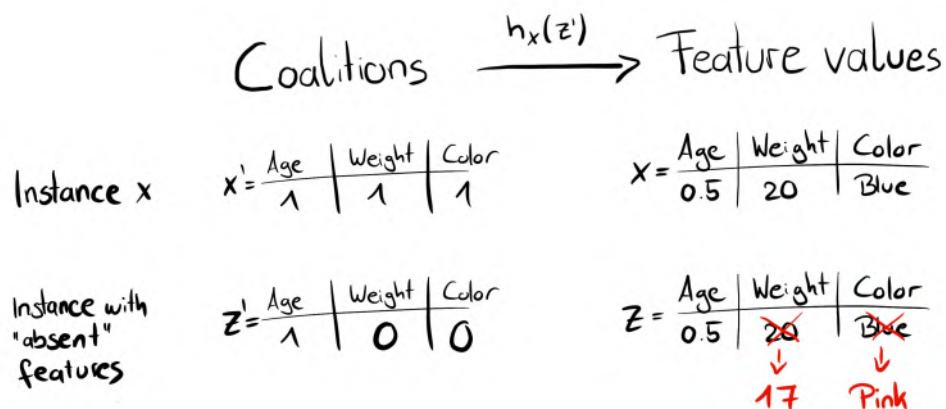 Coalitions h_x(z') → Feature values
Instance x
x' = Age | Weight | Color
1 | 1 | 1
x = Age | Weight | Color
0.5 | 20 | Blue
Instance with
"absent"
features
z' = Age | Weight | Color
1 | 0 | 0
z = Age | Weight | Color
0.5 | 20 | Blue
↓ ↓
17 Pink